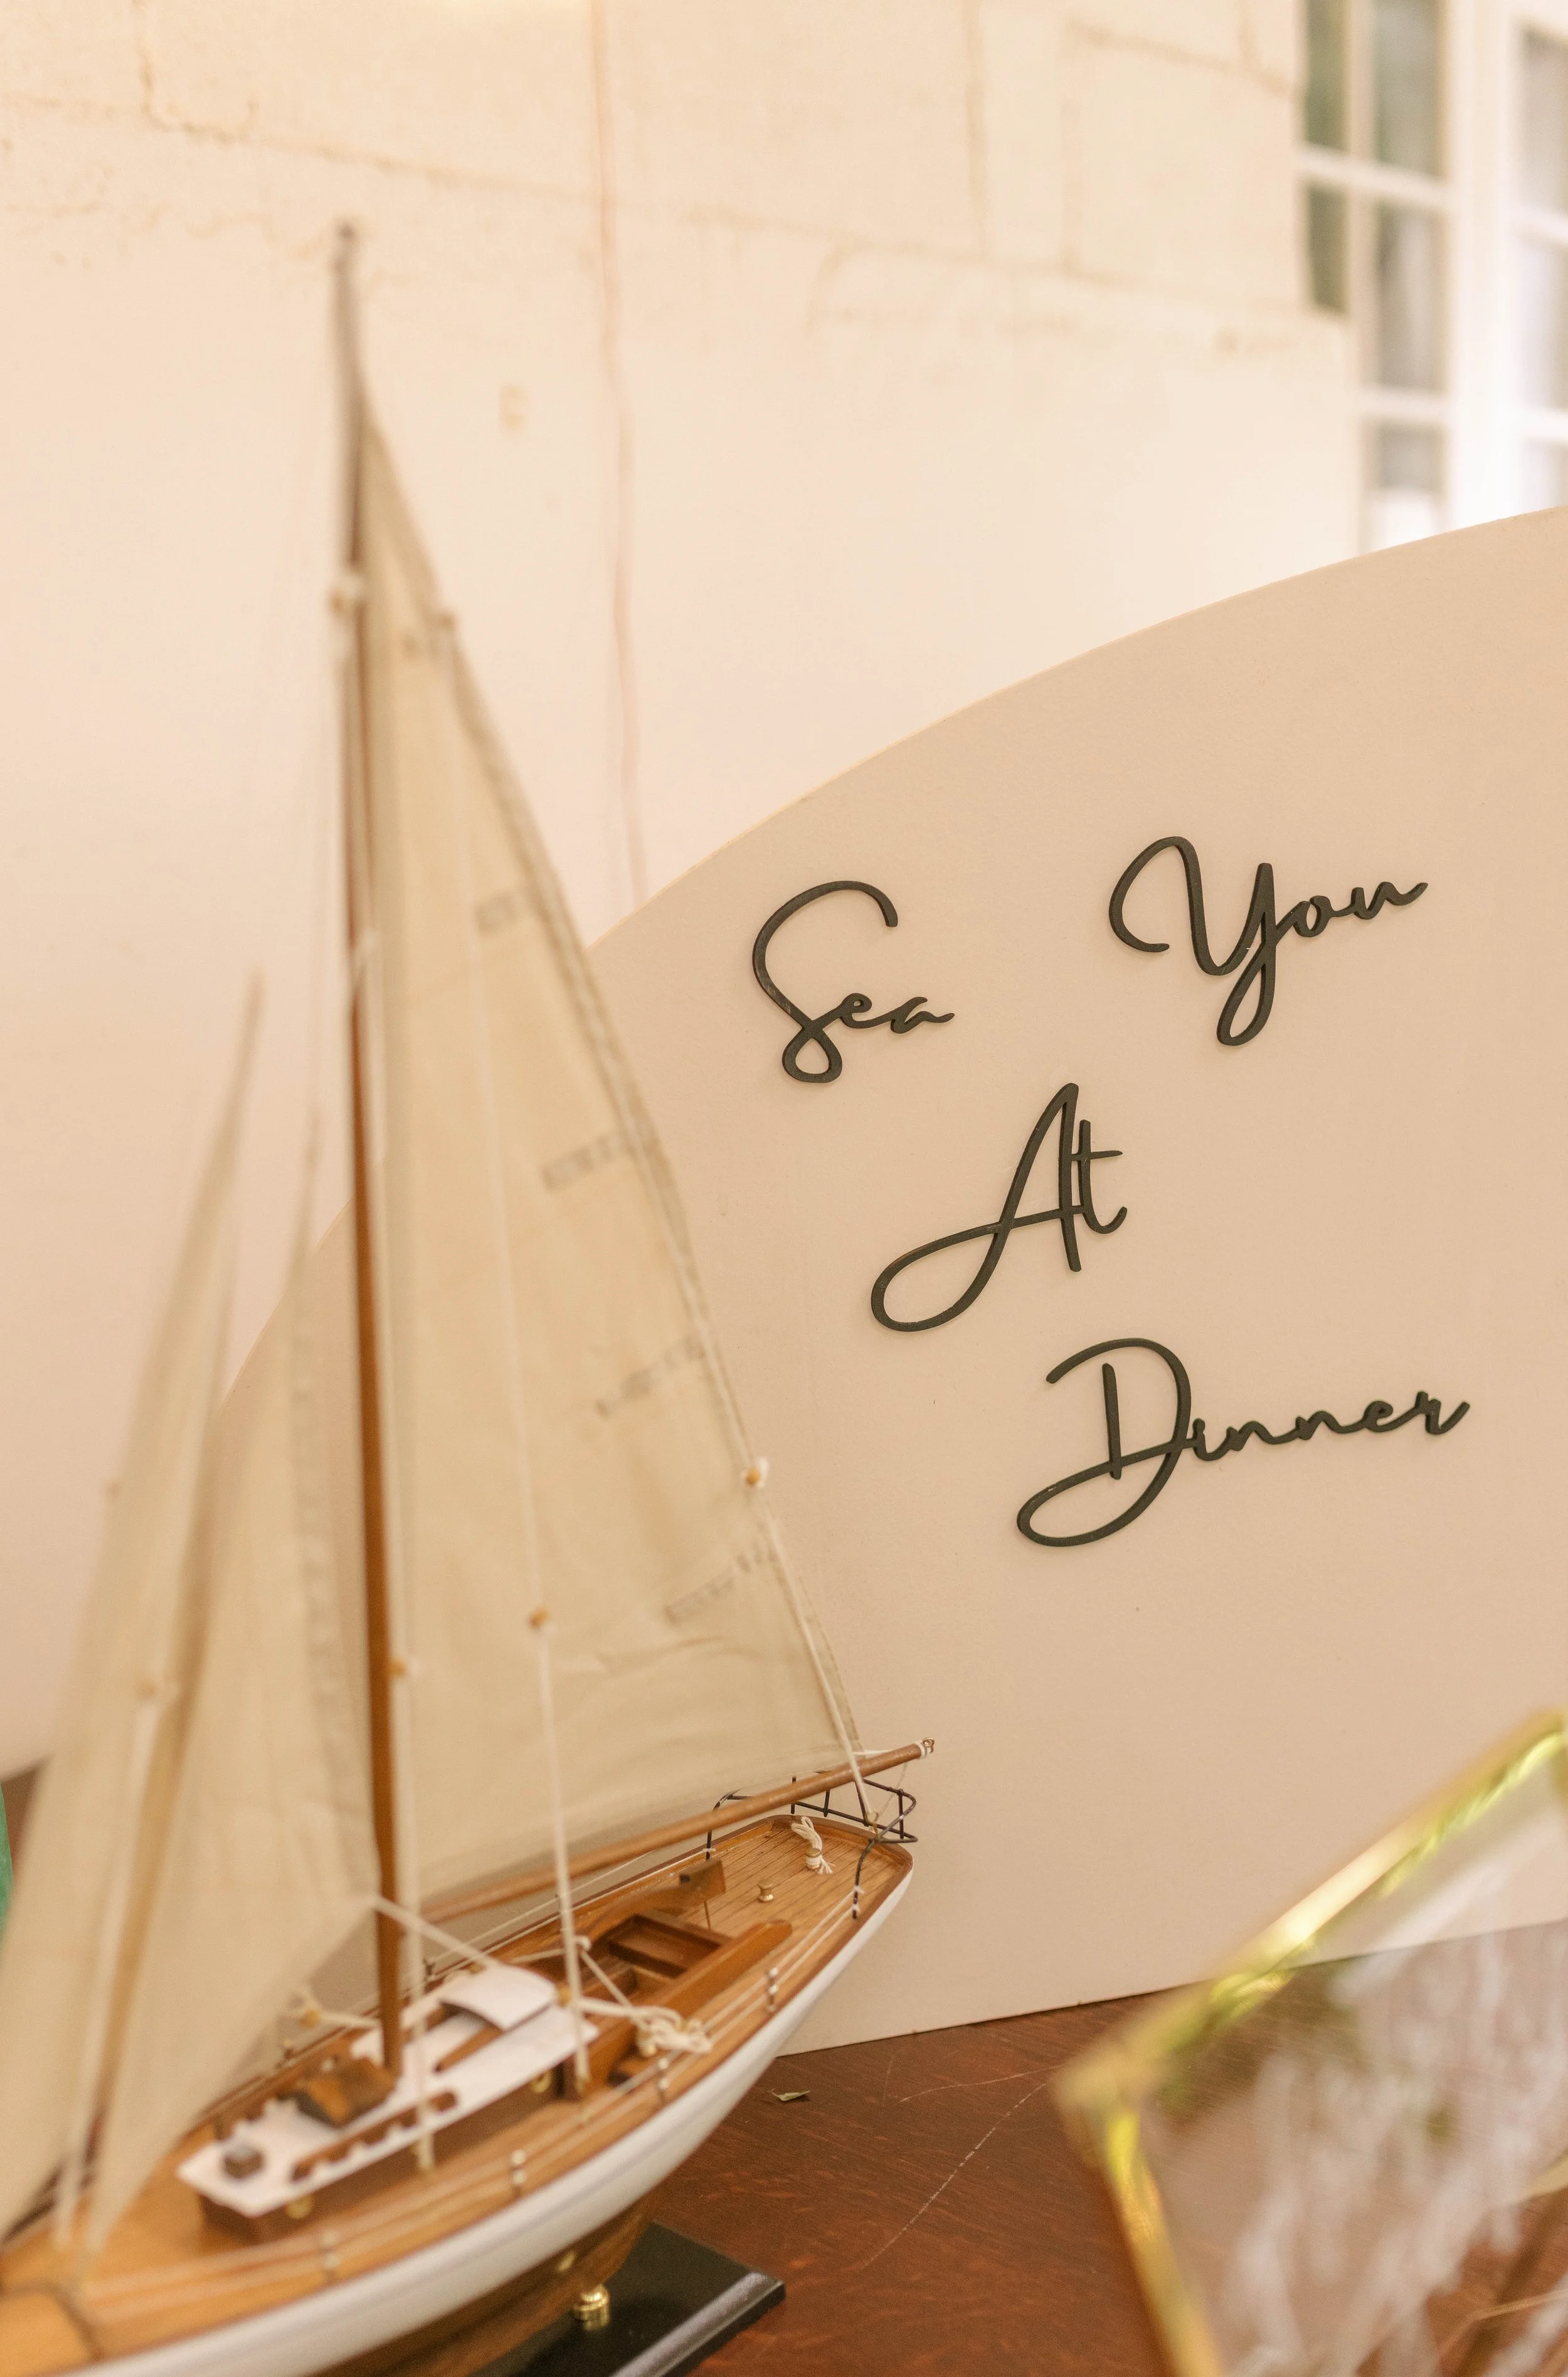 Sea You
At
Dinner